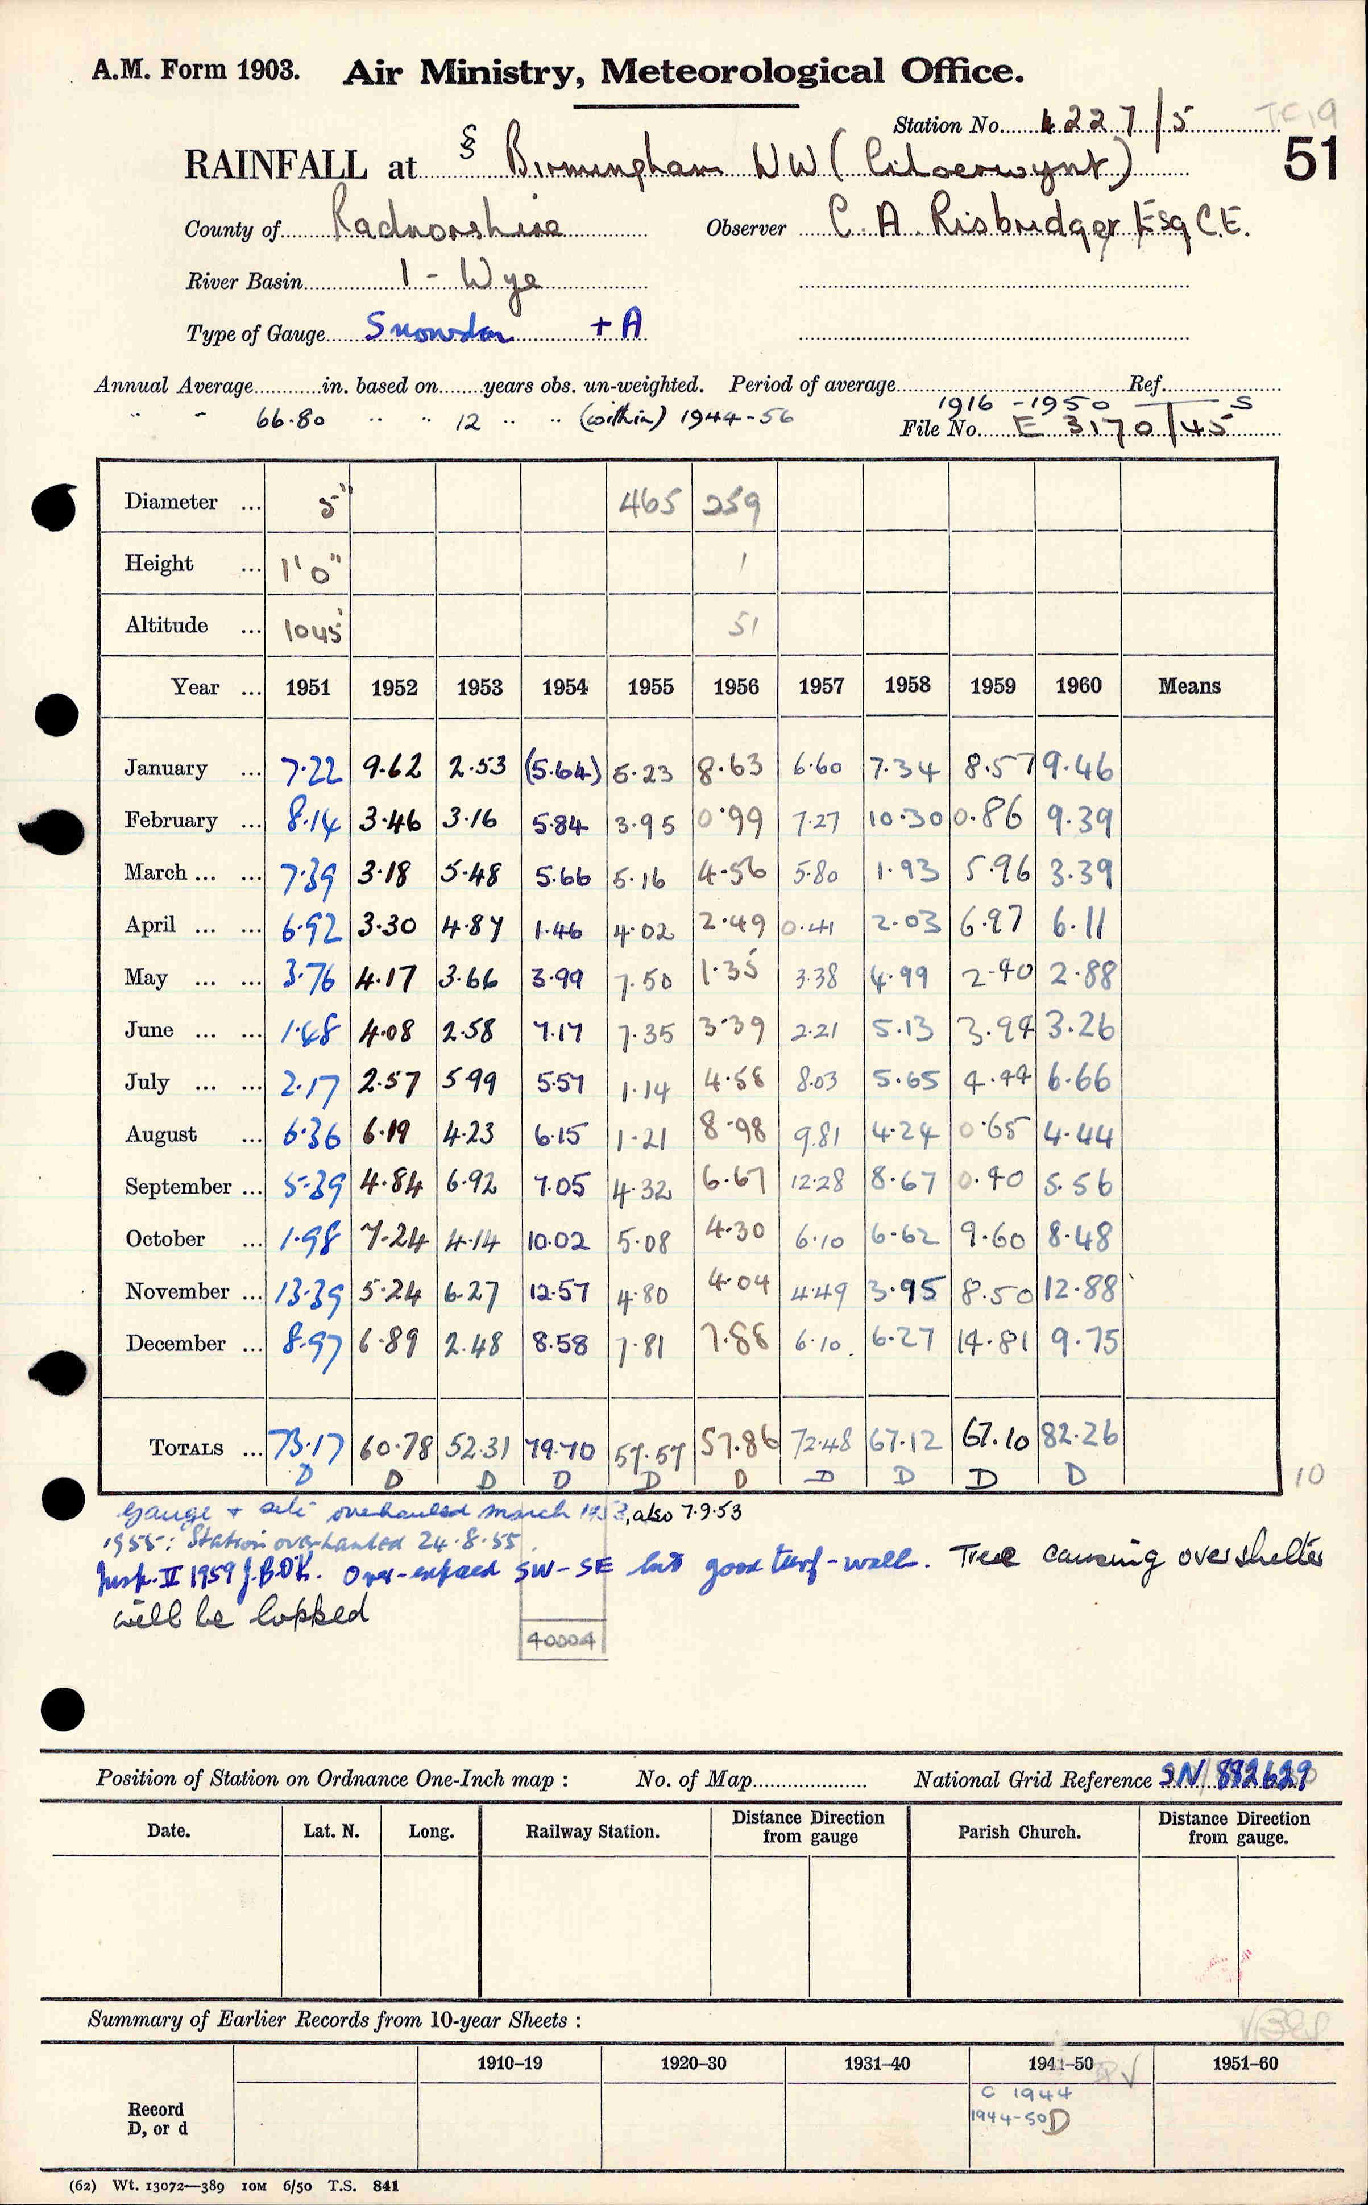 A.M. Form 1903. Air Ministry, Meteorological Office.
Station No. 4227/5
TC19
51
RAINFALL at § Birmingham WW (Ciloerwynt)
County of Radnorshire Observer C. A. Risbridger Esq C.E.
River Basin 1 - Wye
Type of Gauge Snowdon + A
Annual Average in. based on years obs. un-weighted. Period of average 1916 - 1950 Ref. S
" " 66.80 " " 12 " " (within) 1944-56 File No. E 3170/45
Diameter ... 5" 465 259
Height ... 1'0" 1
Altitude ... 1045' 51
Year ... 1951 1952 1953 1954 1955 1956 1957 1958 1959 1960 Means
January ... 7.22 9.62 2.53 (5.64) 5.23 8.63 6.60 7.34 8.57 9.46
February ... 8.14 3.46 3.16 5.84 3.95 0.99 7.27 10.30 0.86 9.39
March ... ... 7.39 3.18 5.48 5.66 5.16 4.56 5.80 1.93 5.96 3.39
April ... ... 6.92 3.30 4.87 1.46 4.02 2.49 0.41 2.03 6.97 6.11
May ... ... 3.76 4.17 3.66 3.99 7.50 1.35 3.38 4.99 2.40 2.88
June ... ... 1.48 4.08 2.58 7.17 7.35 3.39 2.21 5.13 3.94 3.26
July ... ... 2.17 2.57 5.99 5.57 1.14 4.58 8.03 5.65 4.44 6.66
August ... 6.36 6.19 4.23 6.15 1.21 8.98 9.81 4.24 0.65 4.44
September ... 5.39 4.84 6.92 7.05 4.32 6.67 12.28 8.67 0.40 5.56
October ... 1.98 7.24 4.14 10.02 5.08 4.30 6.10 6.62 9.60 8.48
November ... 13.39 5.24 6.27 12.57 4.80 4.04 4.49 3.95 8.50 12.88
December ... 8.97 6.89 2.48 8.58 7.81 7.88 6.10 6.27 14.81 9.75
TOTALS ... 73.17 60.78 52.31 79.70 57.57 57.86 72.48 67.12 67.10 82.26
D D D D D D D D D D
10
Gauge + site overhauled March 1953, also 7.9.53
1955: Station overhauled 24.8.55.
Insp. II 1959 J.B.DK. Over-exposed SW-SE but good turf-wall. Tree causing overshelter
will be lopped
40004
Position of Station on Ordnance One-Inch map : No. of Map National Grid Reference SN/882629
Date. Lat. N. Long. Railway Station. Distance from gauge Direction Parish Church. Distance from gauge. Direction
Summary of Earlier Records from 10-year Sheets :
1910-19 1920-30 1931-40 1941-50 1951-60
Record D, or d
C 1944
1944-50 D
(62) Wt. 13072—389 10M 6/50 T.S. 841